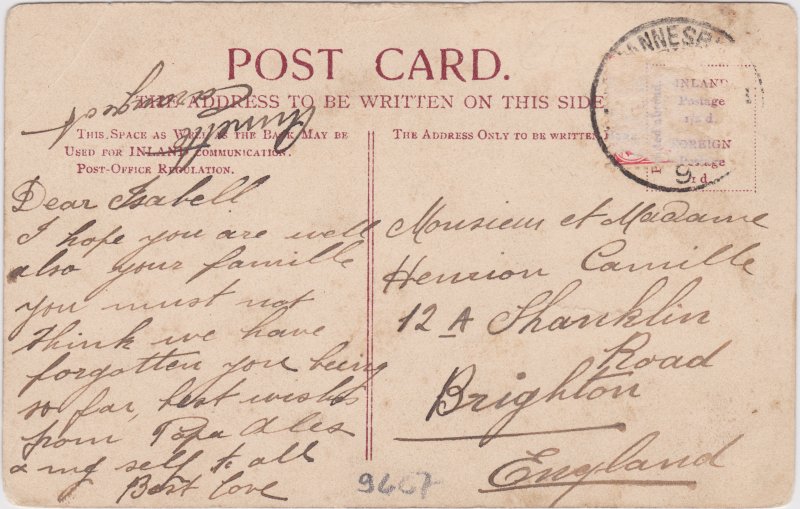 POST CARD.
THE ADDRESS TO BE WRITTEN ON THIS SIDE
THIS SPACE AS WELL AS THE BACK MAY BE
USED FOR INLAND COMMUNICATION.
POST-OFFICE REGULATION.
THE ADDRESS ONLY TO BE WRITTEN
ANNESB
INLAND
Postage
½ d.
FOREIGN
Postage
1 d.
9
Dear Isabell
I hope you are well
also your famille
you must not
think we have
forgotten you being
so far, best wishes
from Papa
& my self to all
Best love
Monsieur et Madame
Henrion Camille
12A Shanklin
Road
Brighton
England